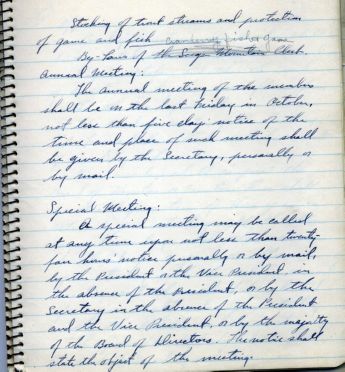 Stocking of trout streams and protection
of game and fish
By-Laws of the Mountain Club.
Annual Meeting:
The annual meeting of the members
shall be on the last Friday in October,
not less than five days notice of the
time and place of such meeting shall
be given by the Secretary, personally or
by mail.
Special Meeting:
A special meeting may be called
at any time upon not less than twenty-
four hours' notice personally or by mail,
by the President or the Vice President in
the absence of the President, or by the
Secretary in the absence of the President
and the Vice President, or by the majority
of the Board of Directors. The notice shall
state the object of the meeting.